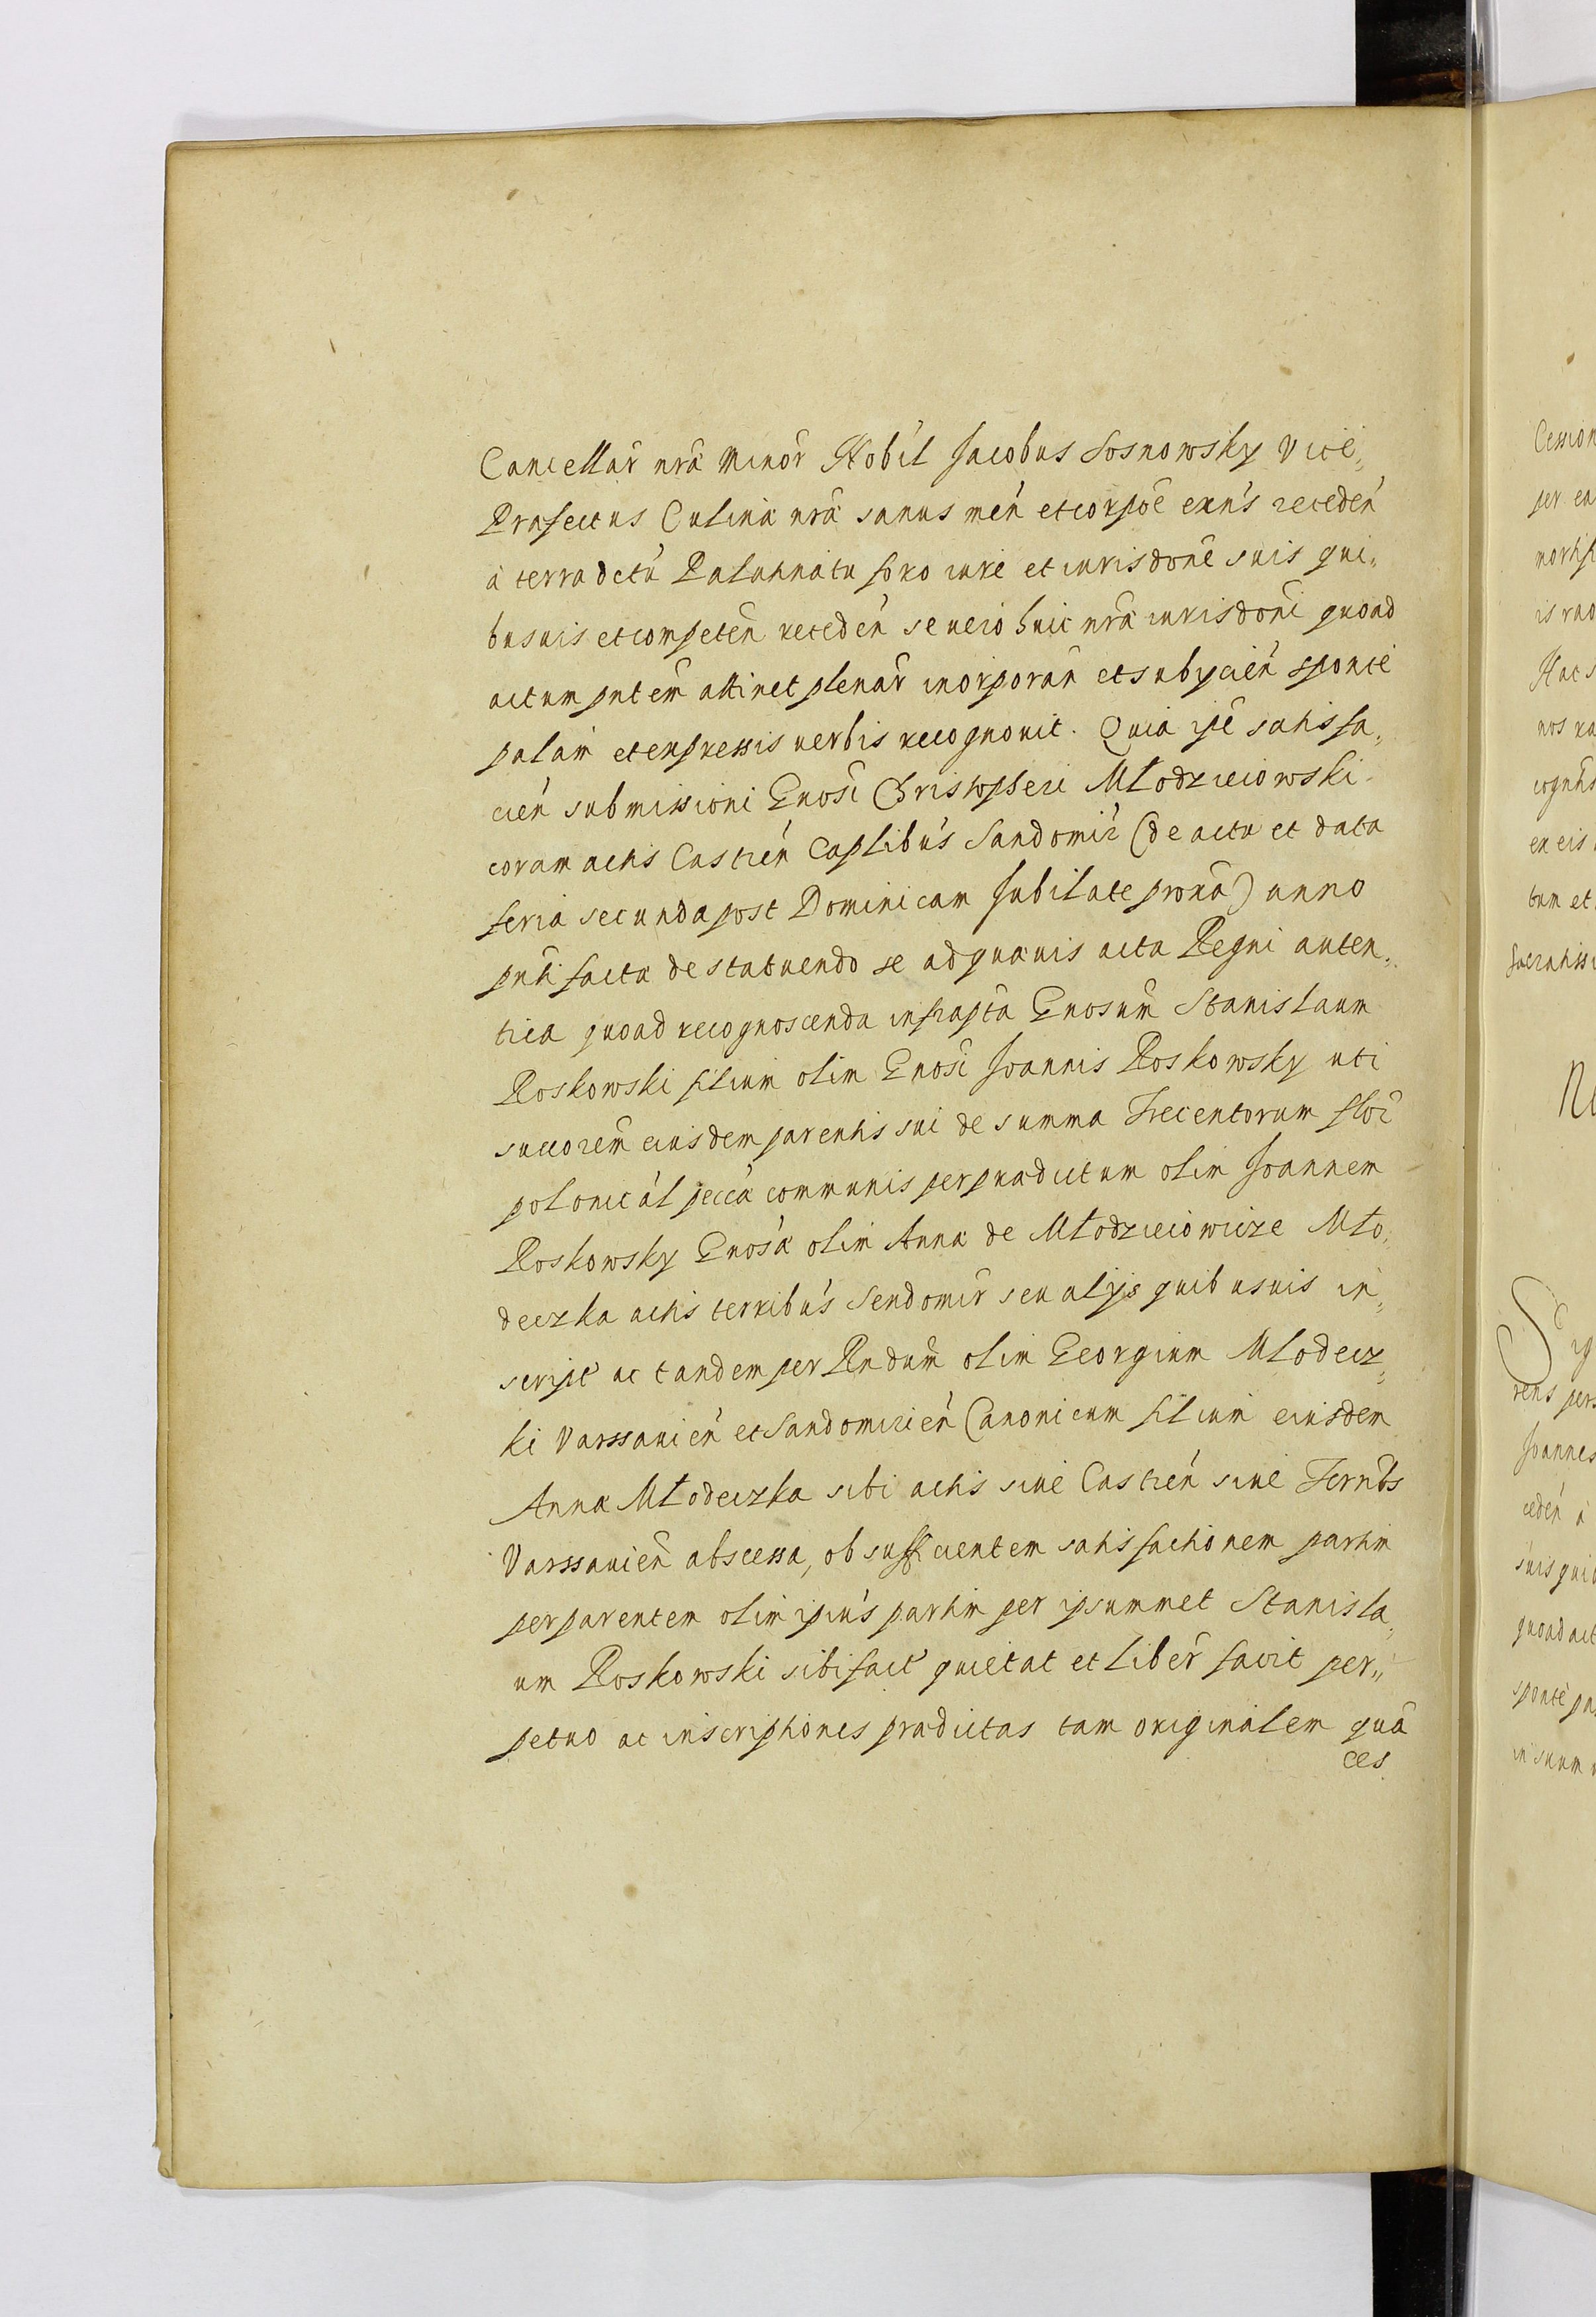 Cancellar̃ nrã Minor̃ Nobil Jacobus Sosnowsky Vice„
Præfectus Culinæ nrã sanus meñ et corpoẽ exns recedeñ
à terra dctũ Palatinatu foro iure et iurisdonẽ suis qui„
busuis et competeñ recedeñ se vero huic nrã iurisdoni quoad
actum pntem attinet plenar̃ incorporañ et subycieñ sponte
palam et expressis verbis recognovit. Quia ipe satisfa„
cieñ submissioni Gnosi Christopheri Młodzieiowski
coram actis Castreñ Caplibus Sandomir̃ (de actu et data
feria secunda post Dominicam Jubilate proxã) anno
pnti facta de statuendo se ad quævis acta Regni auten„
tica quoad recognoscenda infrapta Gnosum Stanislaum
Roskowski filium olim Gnosi Joannis Roskowsky uti
succorem eiusdem parentis sui de summa Trecentorum flor̃
polonical pecca communis per prædictum olim Joannem
Roskowsky Gnosa olim Anna de Młodzieiowicze Mło„
deczka actis terribus Sendomir̃ seu alijs quibusuis in„
script ac tandem per Rndum olim Georgium Młodecz„
ki Varssavieñ et Sandomirieñ Canonicum filium eiusdem
Annæ Młodeczka sibi actis sive Castreñ sive Terribs
Varssavieñ abscessa, ob sufficientem satisfactionem partim
per parentem olim ipius partim per ipsummet Stanisla„
um Roskowski sibi fact quietat et liber̃ facit per„
petuo ac inscriptiones prædictas tam originalem quã
ces
Cession
per ea
Hac s
nos ra
ex eis
tum et
Sig
rens pers
Joannes
cedeñ à
suis quib
quoad act
sponte pa
in suum